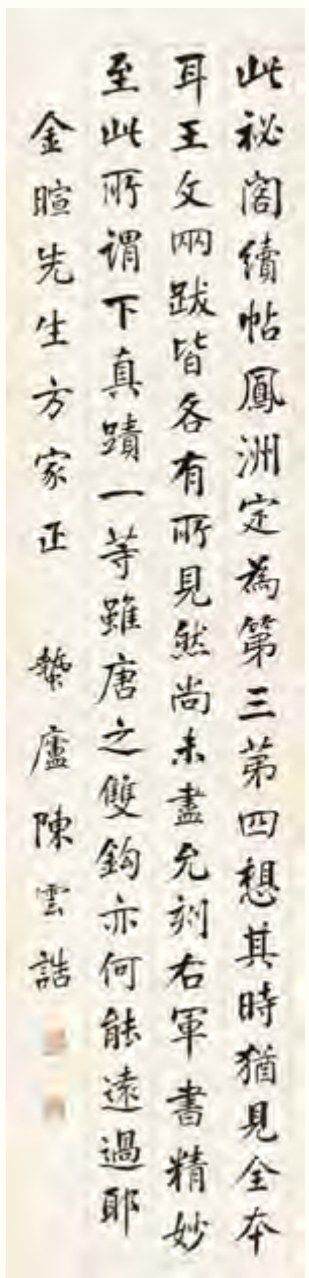 此祕閣續帖鳳洲定為第三第四想其時猶見全本
耳王文兩跋皆各有所見然尚未盡允刻右軍書精妙
至此所謂下真蹟一等雖唐之雙鈎亦何能遠過耶
金暄先生方家正 蟄廬陳雲誥